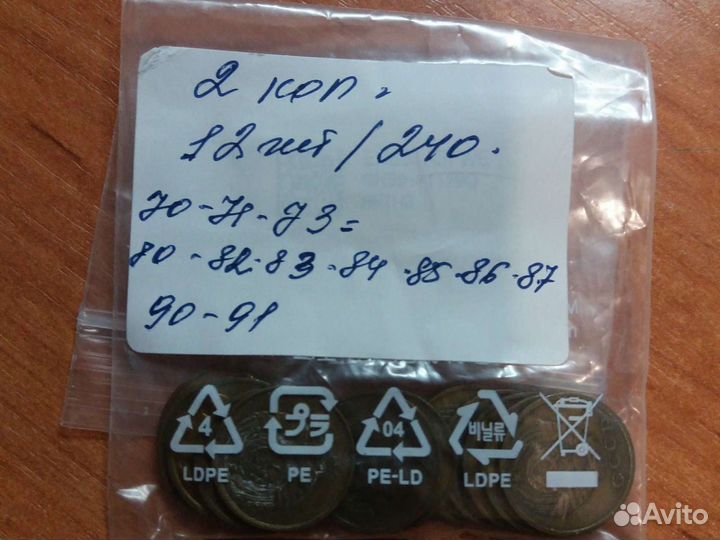 2 коп.
12 шт / 240.
70-71-73=
80-82-83-84-85-86-87
90-91
4 プラ 04 비닐류
LDPE PE PE-LD LDPE
СССР
Avito